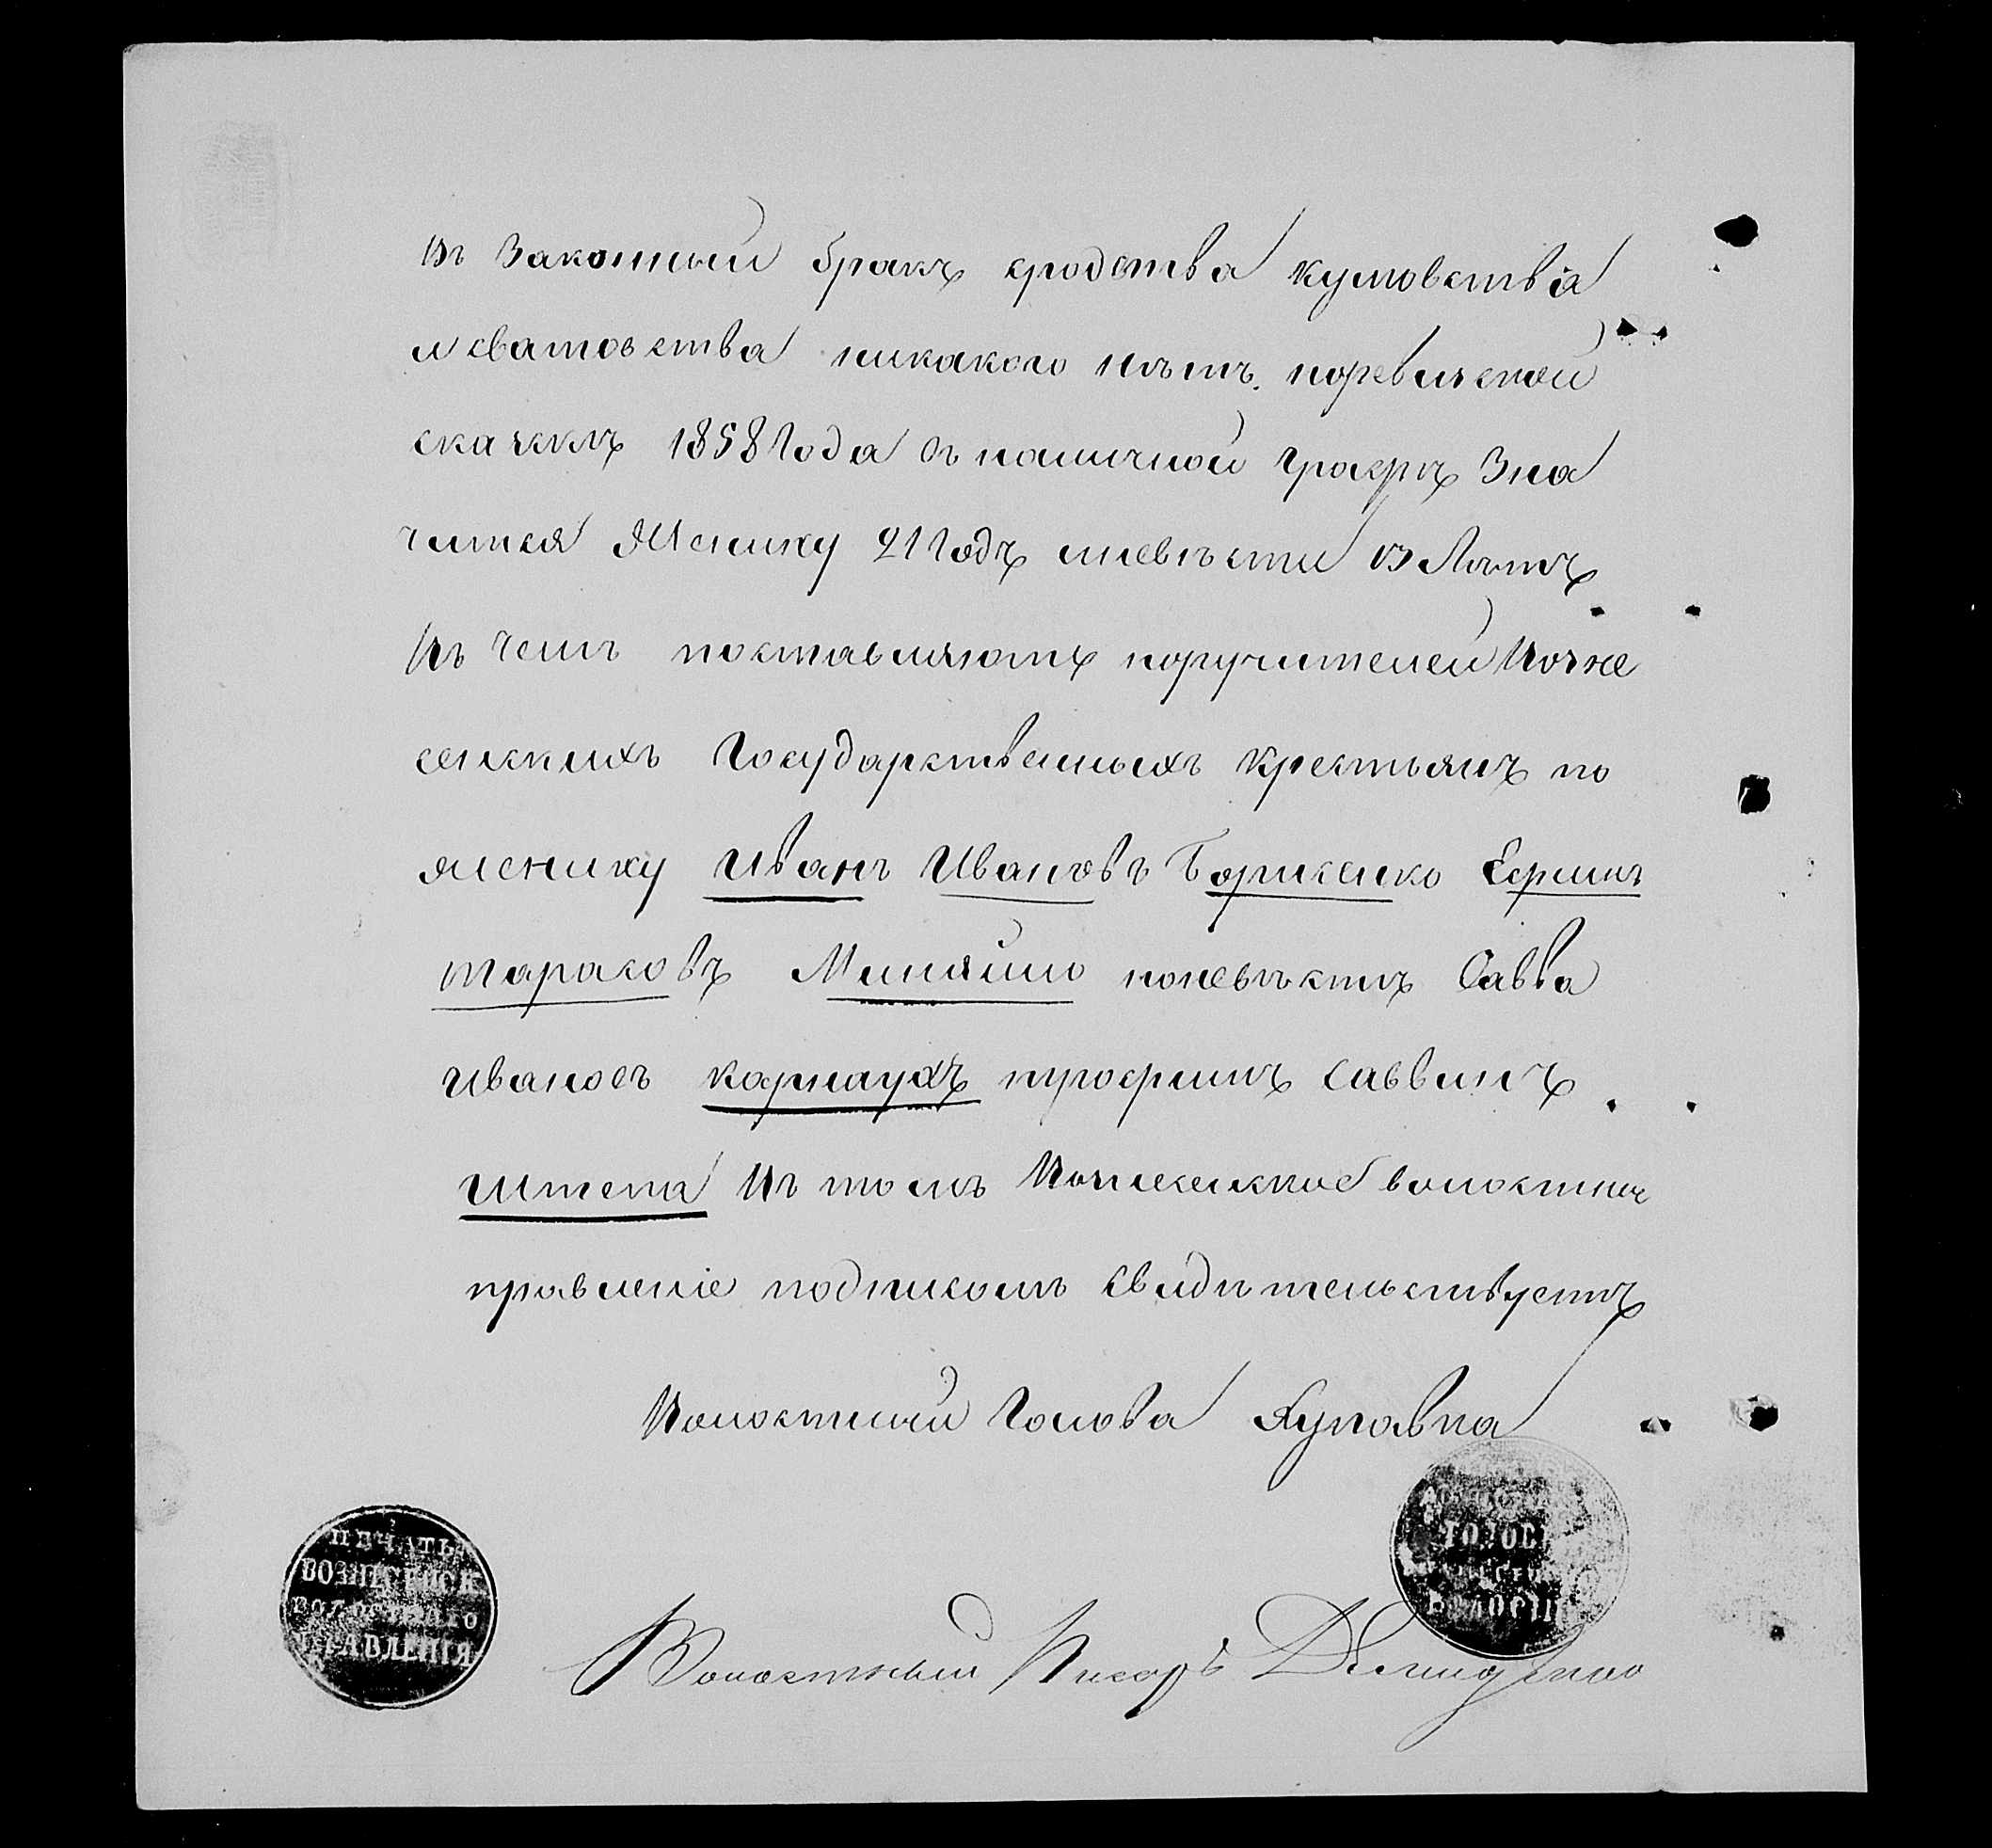 въ Законный бракъ сродства кумовствія
и сватовства никакого нѣтъ. поревизской
сказкѣ 1858 Года въ наличной Графѣ Зна
чится Жениху 21 Годъ иневѣсти 13 Лѣтъ
Въ чемъ поставляютъ поручителей Возне
сенскихъ Государственныхъ крестьянъ по
женику Иванъ Ивановъ Борисенко Ефимъ
тарасовъ Миняйло поневѣстѣ Савва
Ивановъ карнаухъ трофимъ саввинъ
Штепа Въ томъ Вознесенское волостное
правленіе подписомъ свидѣтельствуетъ
Волостный Голова
ПЕЧАТЬ
ВОЗНЕСЕНСК
ВОЛОСТНАГО
ПРАВЛЕНІЯ
Волостный Писарь